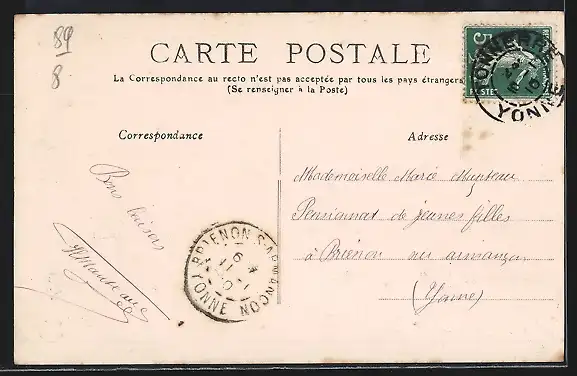 89
8
CARTE POSTALE
La Correspondance au recto n'est pas acceptée par tous les pays étrangers
(Se renseigner à la Poste)
5
POSTES
TONNERRE
YONNE
Correspondance
Adresse
Bons baisers
Mademoiselle Marie
Pensionnat de jeunes filles
à Brienon sur armançon
(Yonne)
BRIENON S-ARMANÇON
YONNE